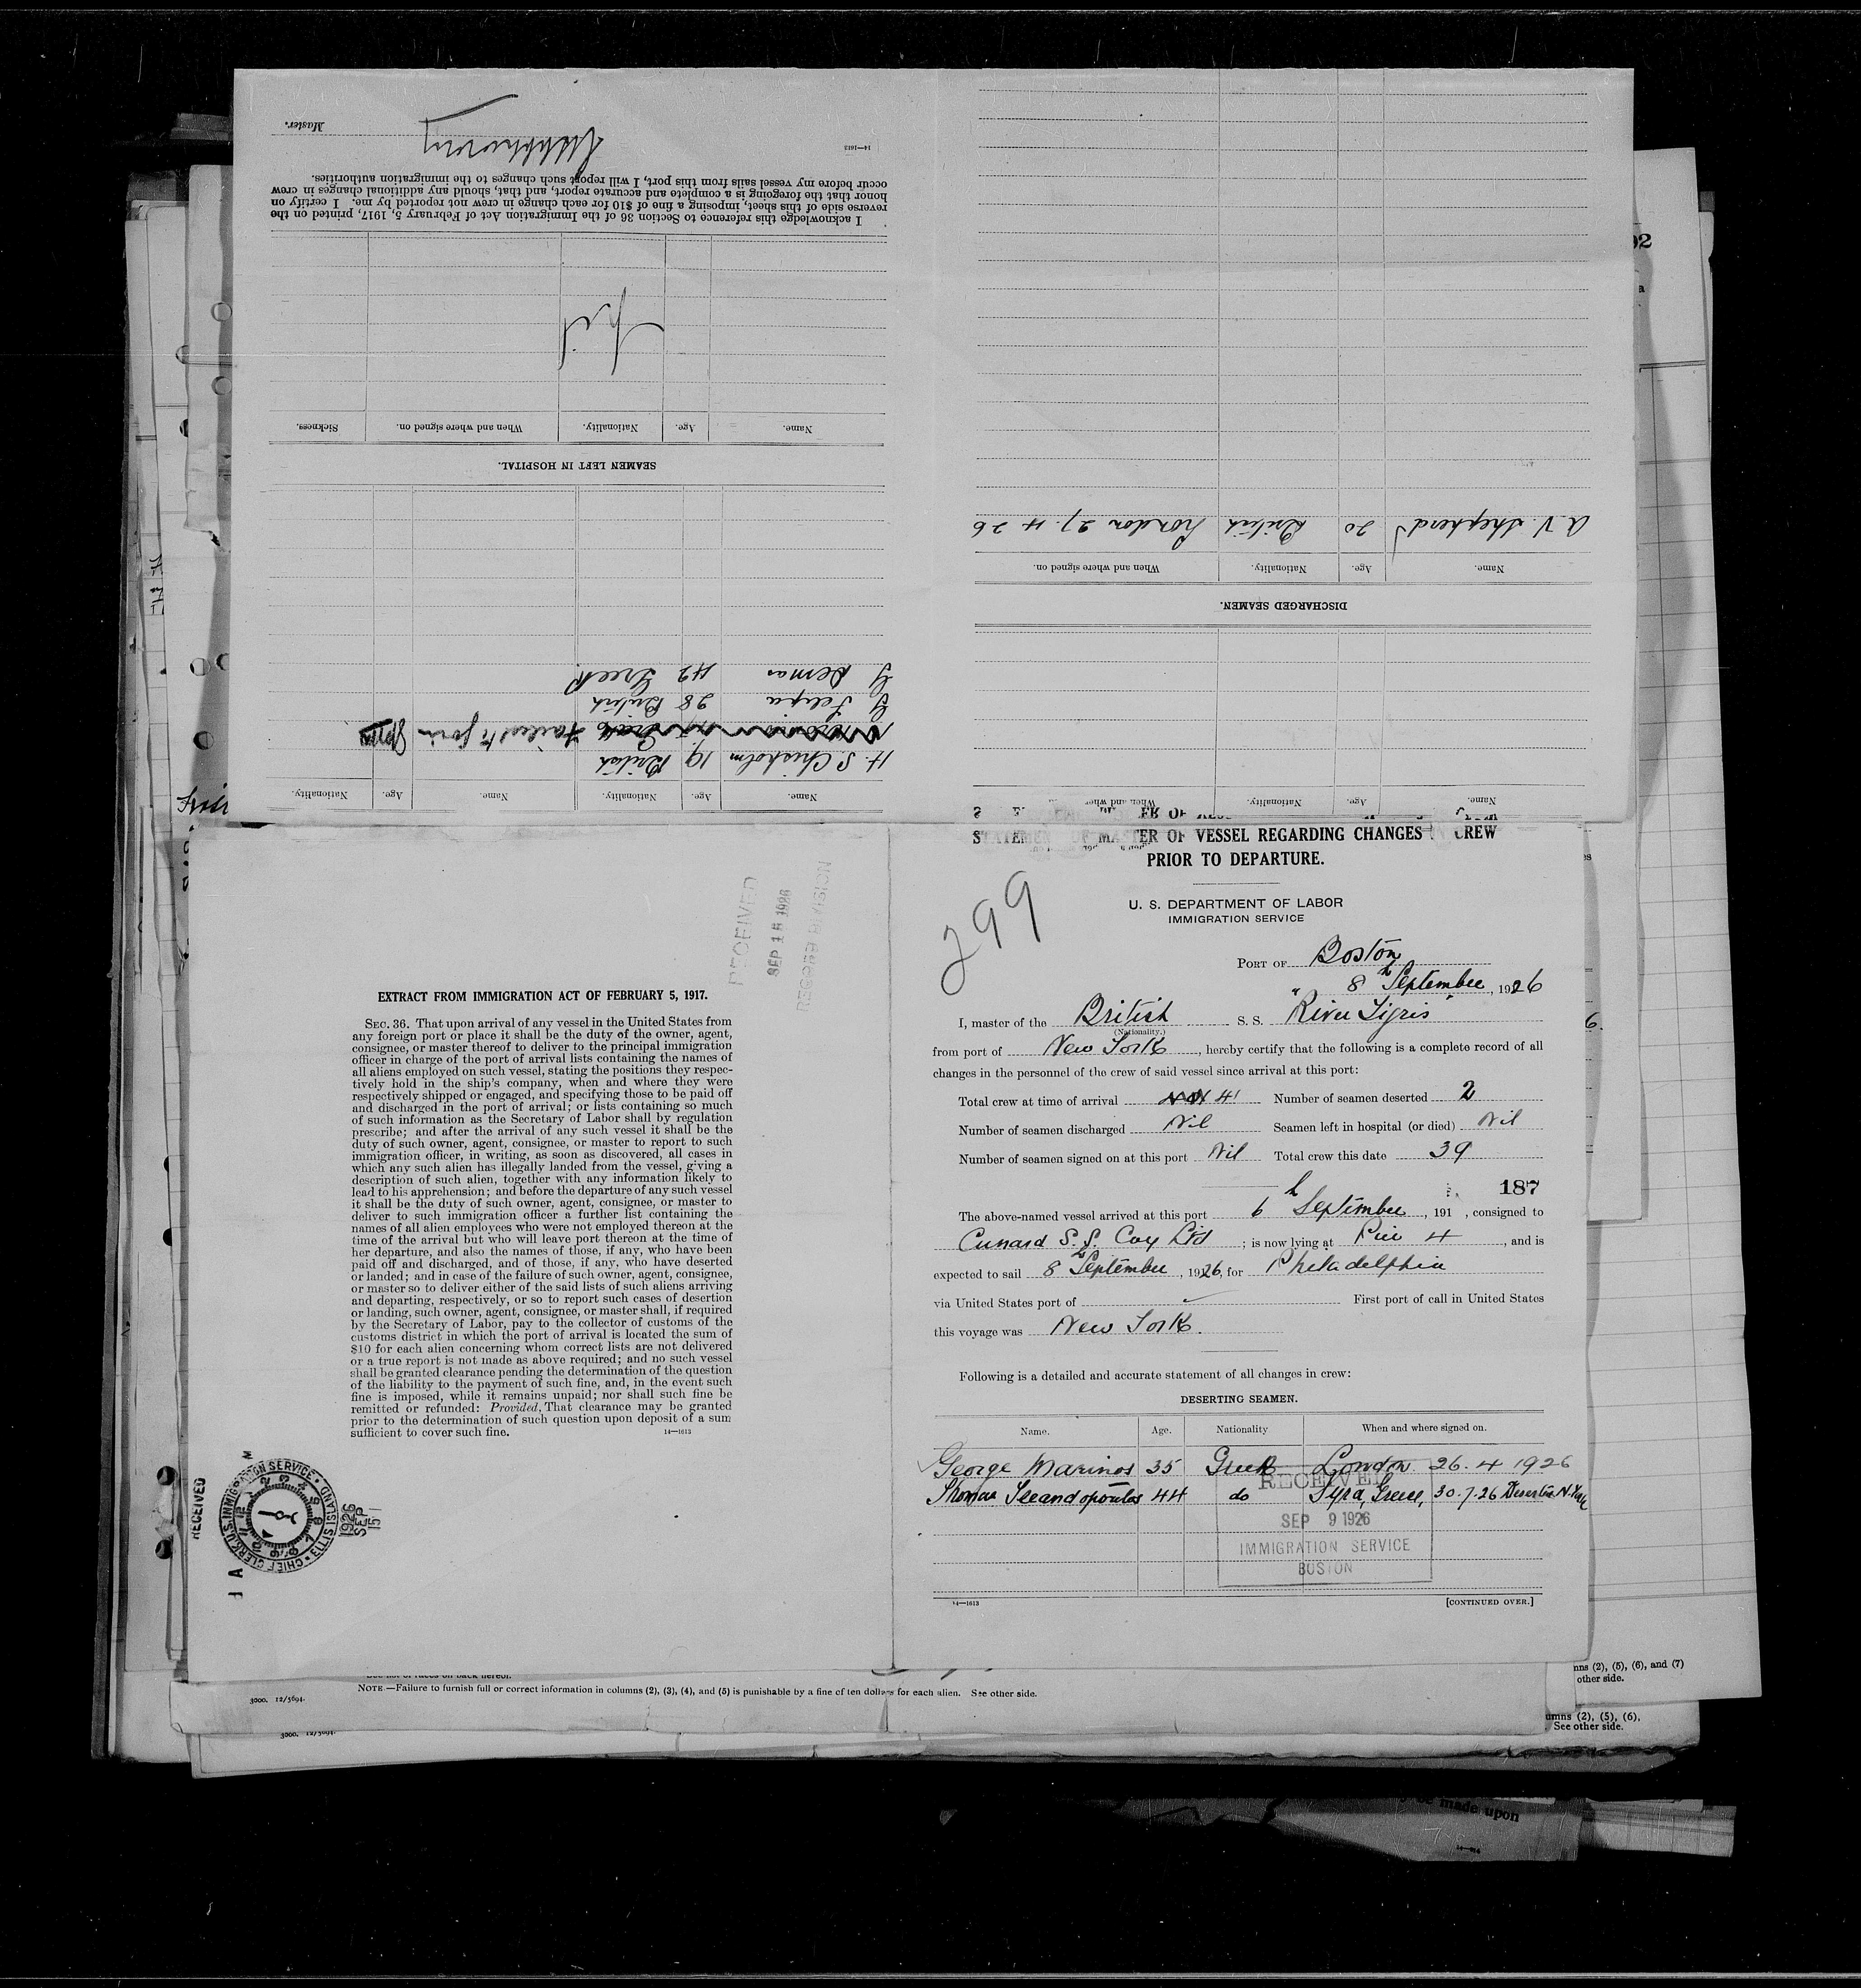 Master.
14—1613
I acknowledge this reference to Section 36 of the Immigration Act of February 5, 1917, printed on the
reverse side of this sheet, imposing a fine of $10 for each change in crew not reported by me. I certify on
honor that the foregoing is a complete and accurate report, and that, should any additional changes in crew
occur before my vessel sails from this port, I will report such changes to the immigration authorities.
Nil
Name. Age. Nationality. When and where signed on. Sickness.
SEAMEN LEFT IN HOSPITAL.
Name. Age. Nationality. Name. Age. Nationality.
H. S. Chisholm 19 British
Failed to join
28 British
Demas 42 Greek
Name. Age. Nationality. When and where
DISCHARGED SEAMEN.
Name. Age. Nationality. When and where signed on.
A. V. Shepherd 20 British London 27. 4 26
RECEIVED
SEP 15 1926
RECORD DIVISION
EXTRACT FROM IMMIGRATION ACT OF FEBRUARY 5, 1917.
SEC. 36. That upon arrival of any vessel in the United States from
any foreign port or place it shall be the duty of the owner, agent,
consignee, or master thereof to deliver to the principal immigration
officer in charge of the port of arrival lists containing the names of
all aliens employed on such vessel, stating the positions they respec-
tively hold in the ship's company, when and where they were
respectively shipped or engaged, and specifying those to be paid off
and discharged in the port of arrival; or lists containing so much
of such information as the Secretary of Labor shall by regulation
prescribe; and after the arrival of any such vessel it shall be the
duty of such owner, agent, consignee, or master to report to such
immigration officer, in writing, as soon as discovered, all cases in
which any such alien has illegally landed from the vessel, giving a
description of such alien, together with any information likely to
lead to his apprehension; and before the departure of any such vessel
it shall be the duty of such owner, agent, consignee, or master to
deliver to such immigration officer a further list containing the
names of all alien employees who were not employed thereon at the
time of the arrival but who will leave port thereon at the time of
her departure, and also the names of those, if any, who have been
paid off and discharged, and of those, if any, who have deserted
or landed; and in case of the failure of such owner, agent, consignee,
or master so to deliver either of the said lists of such aliens arriving
and departing, respectively, or so to report such cases of desertion
or landing, such owner, agent, consignee, or master shall, if required
by the Secretary of Labor, pay to the collector of customs of the
customs district in which the port of arrival is located the sum of
$10 for each alien concerning whom correct lists are not delivered
or a true report is not made as above required; and no such vessel
shall be granted clearance pending the determination of the question
of the liability to the payment of such fine, and, in the event such
fine is imposed, while it remains unpaid; nor shall such fine be
remitted or refunded: Provided, That clearance may be granted
prior to the determination of such question upon deposit of a sum
sufficient to cover such fine.
14—1613
RECEIVED
CHIEF CLERK U.S. IMMIGRATION SERVICE • ELLIS ISLAND
1926 SEP 15
299
STATEMENT OF MASTER OF VESSEL REGARDING CHANGES IN CREW
PRIOR TO DEPARTURE.
U. S. DEPARTMENT OF LABOR
IMMIGRATION SERVICE
PORT OF Boston
8th September, 1926
I, master of the British S. S. "River Tigris"
(Nationality.)
from port of New York, hereby certify that the following is a complete record of all
changes in the personnel of the crew of said vessel since arrival at this port:
Total crew at time of arrival 41 Number of seamen deserted 2
Number of seamen discharged Nil Seamen left in hospital (or died) Nil
Number of seamen signed on at this port Nil Total crew this date 39
187
The above-named vessel arrived at this port 6th September, 191 , consigned to
Cunard S. S. Coy Ltd; is now lying at Pier 4, and is
expected to sail 8th September, 1926, for Philadelphia
via United States port of First port of call in United States
this voyage was New York.
Following is a detailed and accurate statement of all changes in crew:
DESERTING SEAMEN.
Name. Age. Nationality When and where signed on.
George Marinos 35 Greek London 26. 4 1926
Thomas 44 do Syra, Greece, 30.7.26 Deserted N.York
RECEIVED
SEP 9 1926
IMMIGRATION SERVICE
BOSTON
14—1613
[CONTINUED OVER.]
NOTE.—Failure to furnish full or correct information in columns (2), (3), (4), and (5) is punishable by a fine of ten dollars for each alien. See other side.
3000. 12/5694.
3000. 12/5694.
(2), (5), (6), and (7)
other side.
(2), (5), (6),
See other side.
made upon